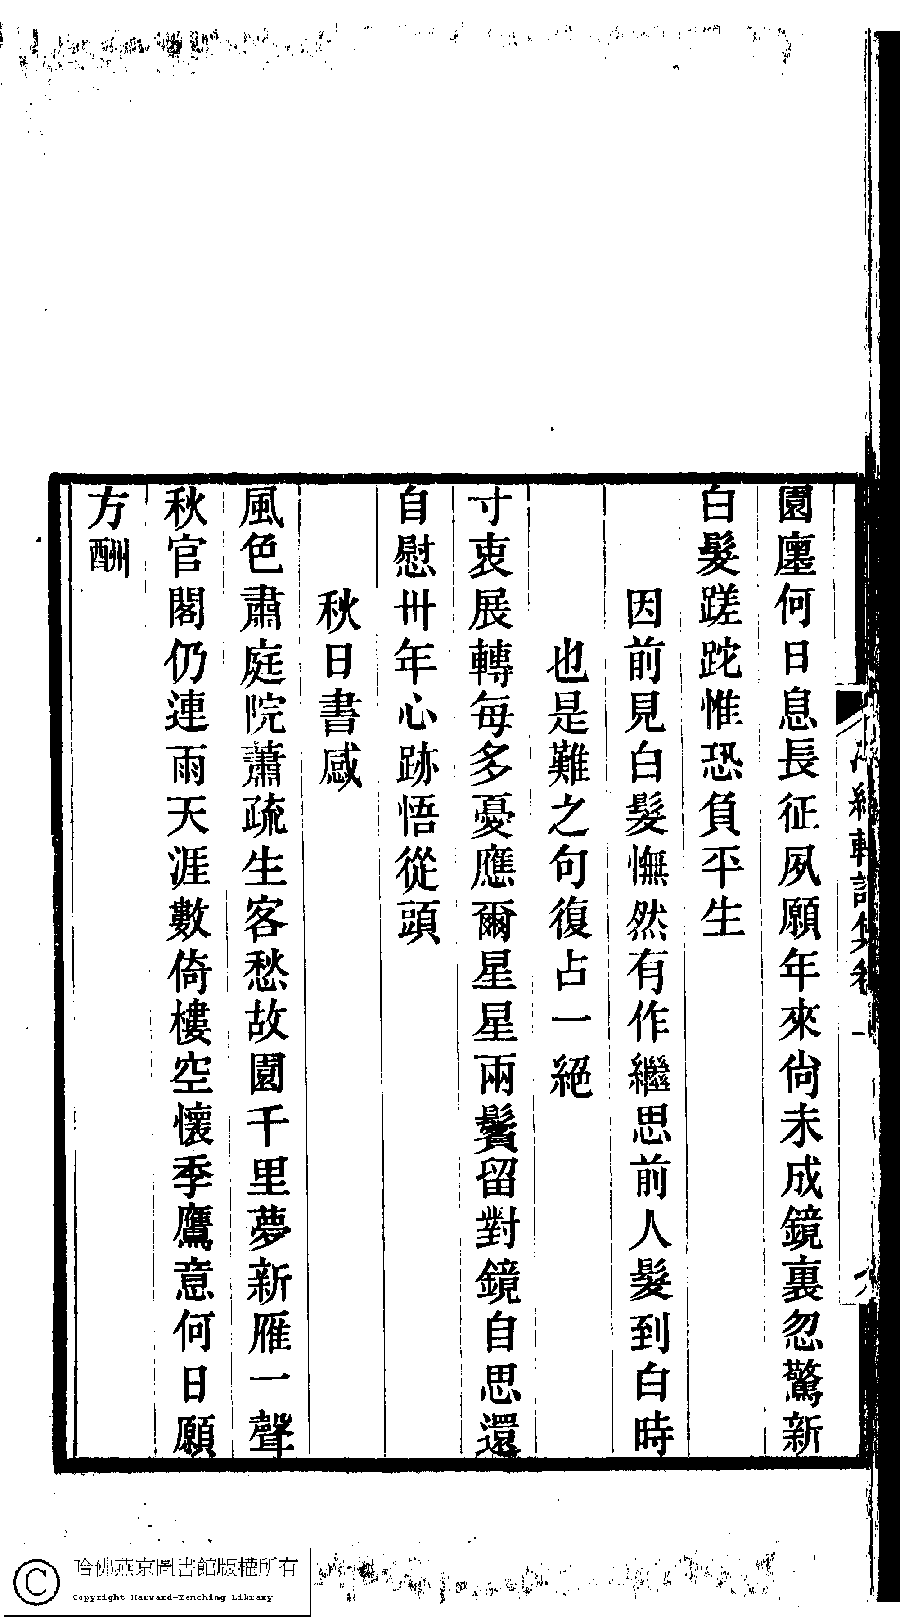 園廛何日息長征夙願年來尙未成鏡裏忽驚新
白髮蹉跎惟恐負平生
因前見白髮憮然有作繼思前人髮到白時
也是難之句復占一絕
寸衷展轉每多憂應爾星星兩鬢留對鏡自思還
自慰卅年心跡悟從頭
秋日書感
風色肅庭院蕭疏生客愁故園千里夢新雁一聲
秋官閣仍連雨天涯數倚樓空懷季鷹意何日願
方酬
哈佛燕京圖書館版權所有
Copyright Harvard-Yenching Library